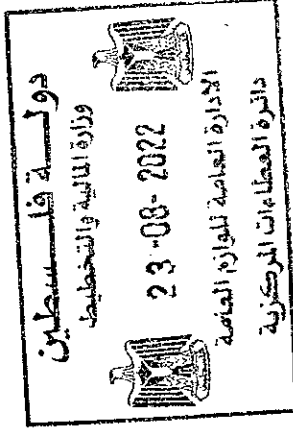 دولة فلسطين
وزارة المالية والتخطيط
23 -08- 2022
الادارة العامة للوازم العامة
دائرة العطاءات المركزية